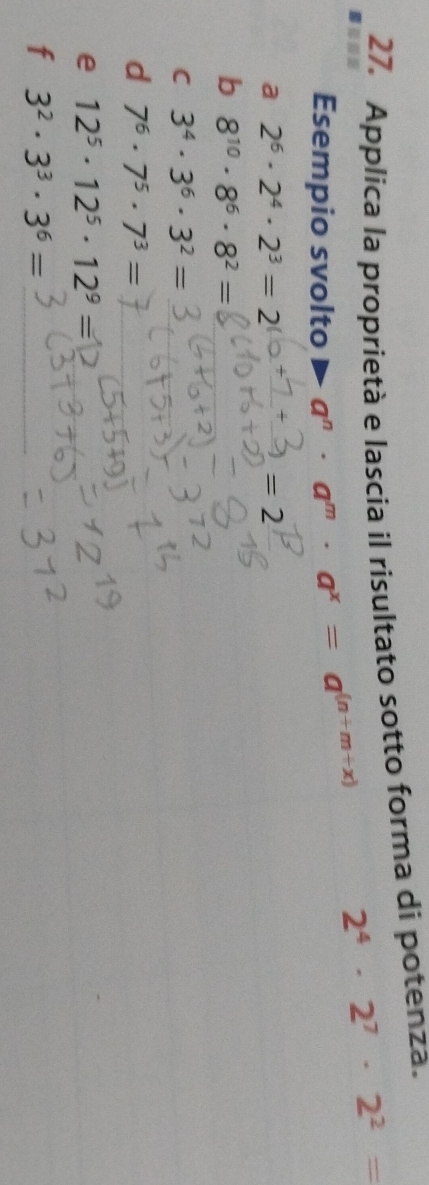 27. Applica la proprietà e lascia il risultato sotto forma di potenza.
Esempio svolto ▶ aⁿ · aᵐ · aˣ = a⁽ⁿ⁺ᵐ⁺ˣ⁾ 2⁴ · 2⁷ · 2² =
a 2⁶ · 2⁴ · 2³ = 2⁽⁶⁺⁴⁺³⁾ = 2¹³
b 8¹⁰ · 8⁶ · 8² = 8⁽¹⁰⁺⁶⁺²⁾ = 8¹⁸
c 3⁴ · 3⁶ · 3² = 3⁽⁴⁺⁶⁺²⁾ = 3¹²
d 7⁶ · 7⁵ · 7³ = 7⁽⁶⁺⁵⁺³⁾ = 7¹⁴
e 12⁵ · 12⁵ · 12⁹ = 12⁽⁵⁺⁵⁺⁹⁾ = 12¹⁹
f 3² · 3³ · 3⁶ = 3⁽³⁺³⁺⁶⁾ = 3¹²